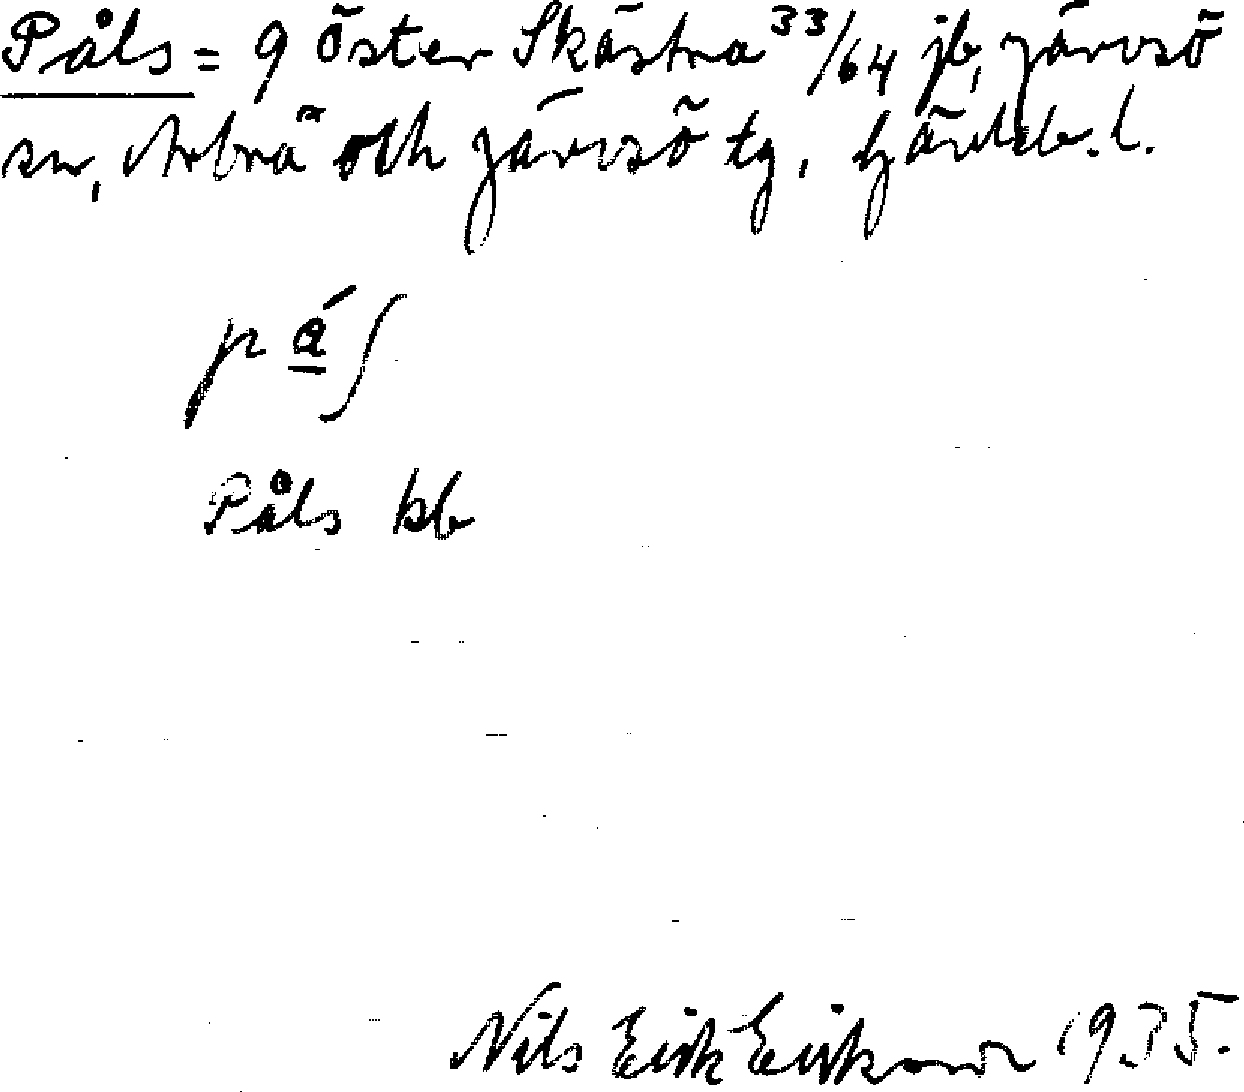 Påls = 9 Öster Skästra 33/64 jb, Järvsö
sn, Arbrå och Järvsö tg,
Påls kb
Nils Erik Eriksson 1935.